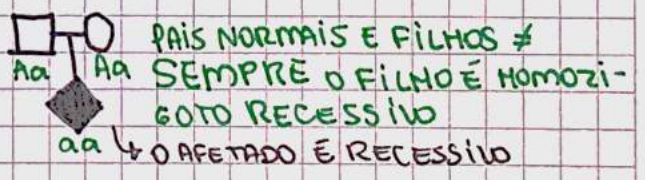 PAIS NORMAIS E FILHOS ≠
Aa Aa SEMPRE O FILHO É HOMOZI-
GOTO RECESSIVO
aa ↳ O AFETADO É RECESSIVO